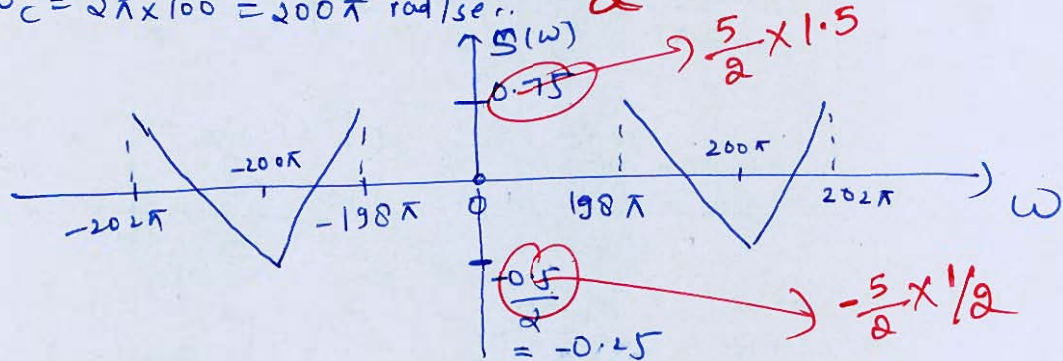 ω_c = 2π × 100 = 200π rad/sec.
S(ω)
0.75
5/2 × 1.5
-200π
200π
-202π
-198π
0
198π
202π
ω
-0.5/2
= -0.25
-5/2 × 1/2